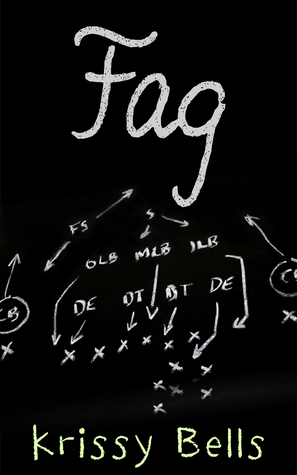 Fag
FS S
OLB MLB ILB
CB DE DT DT DE CB
X X X X X X X X
X X
X X X
X
Krissy Bells